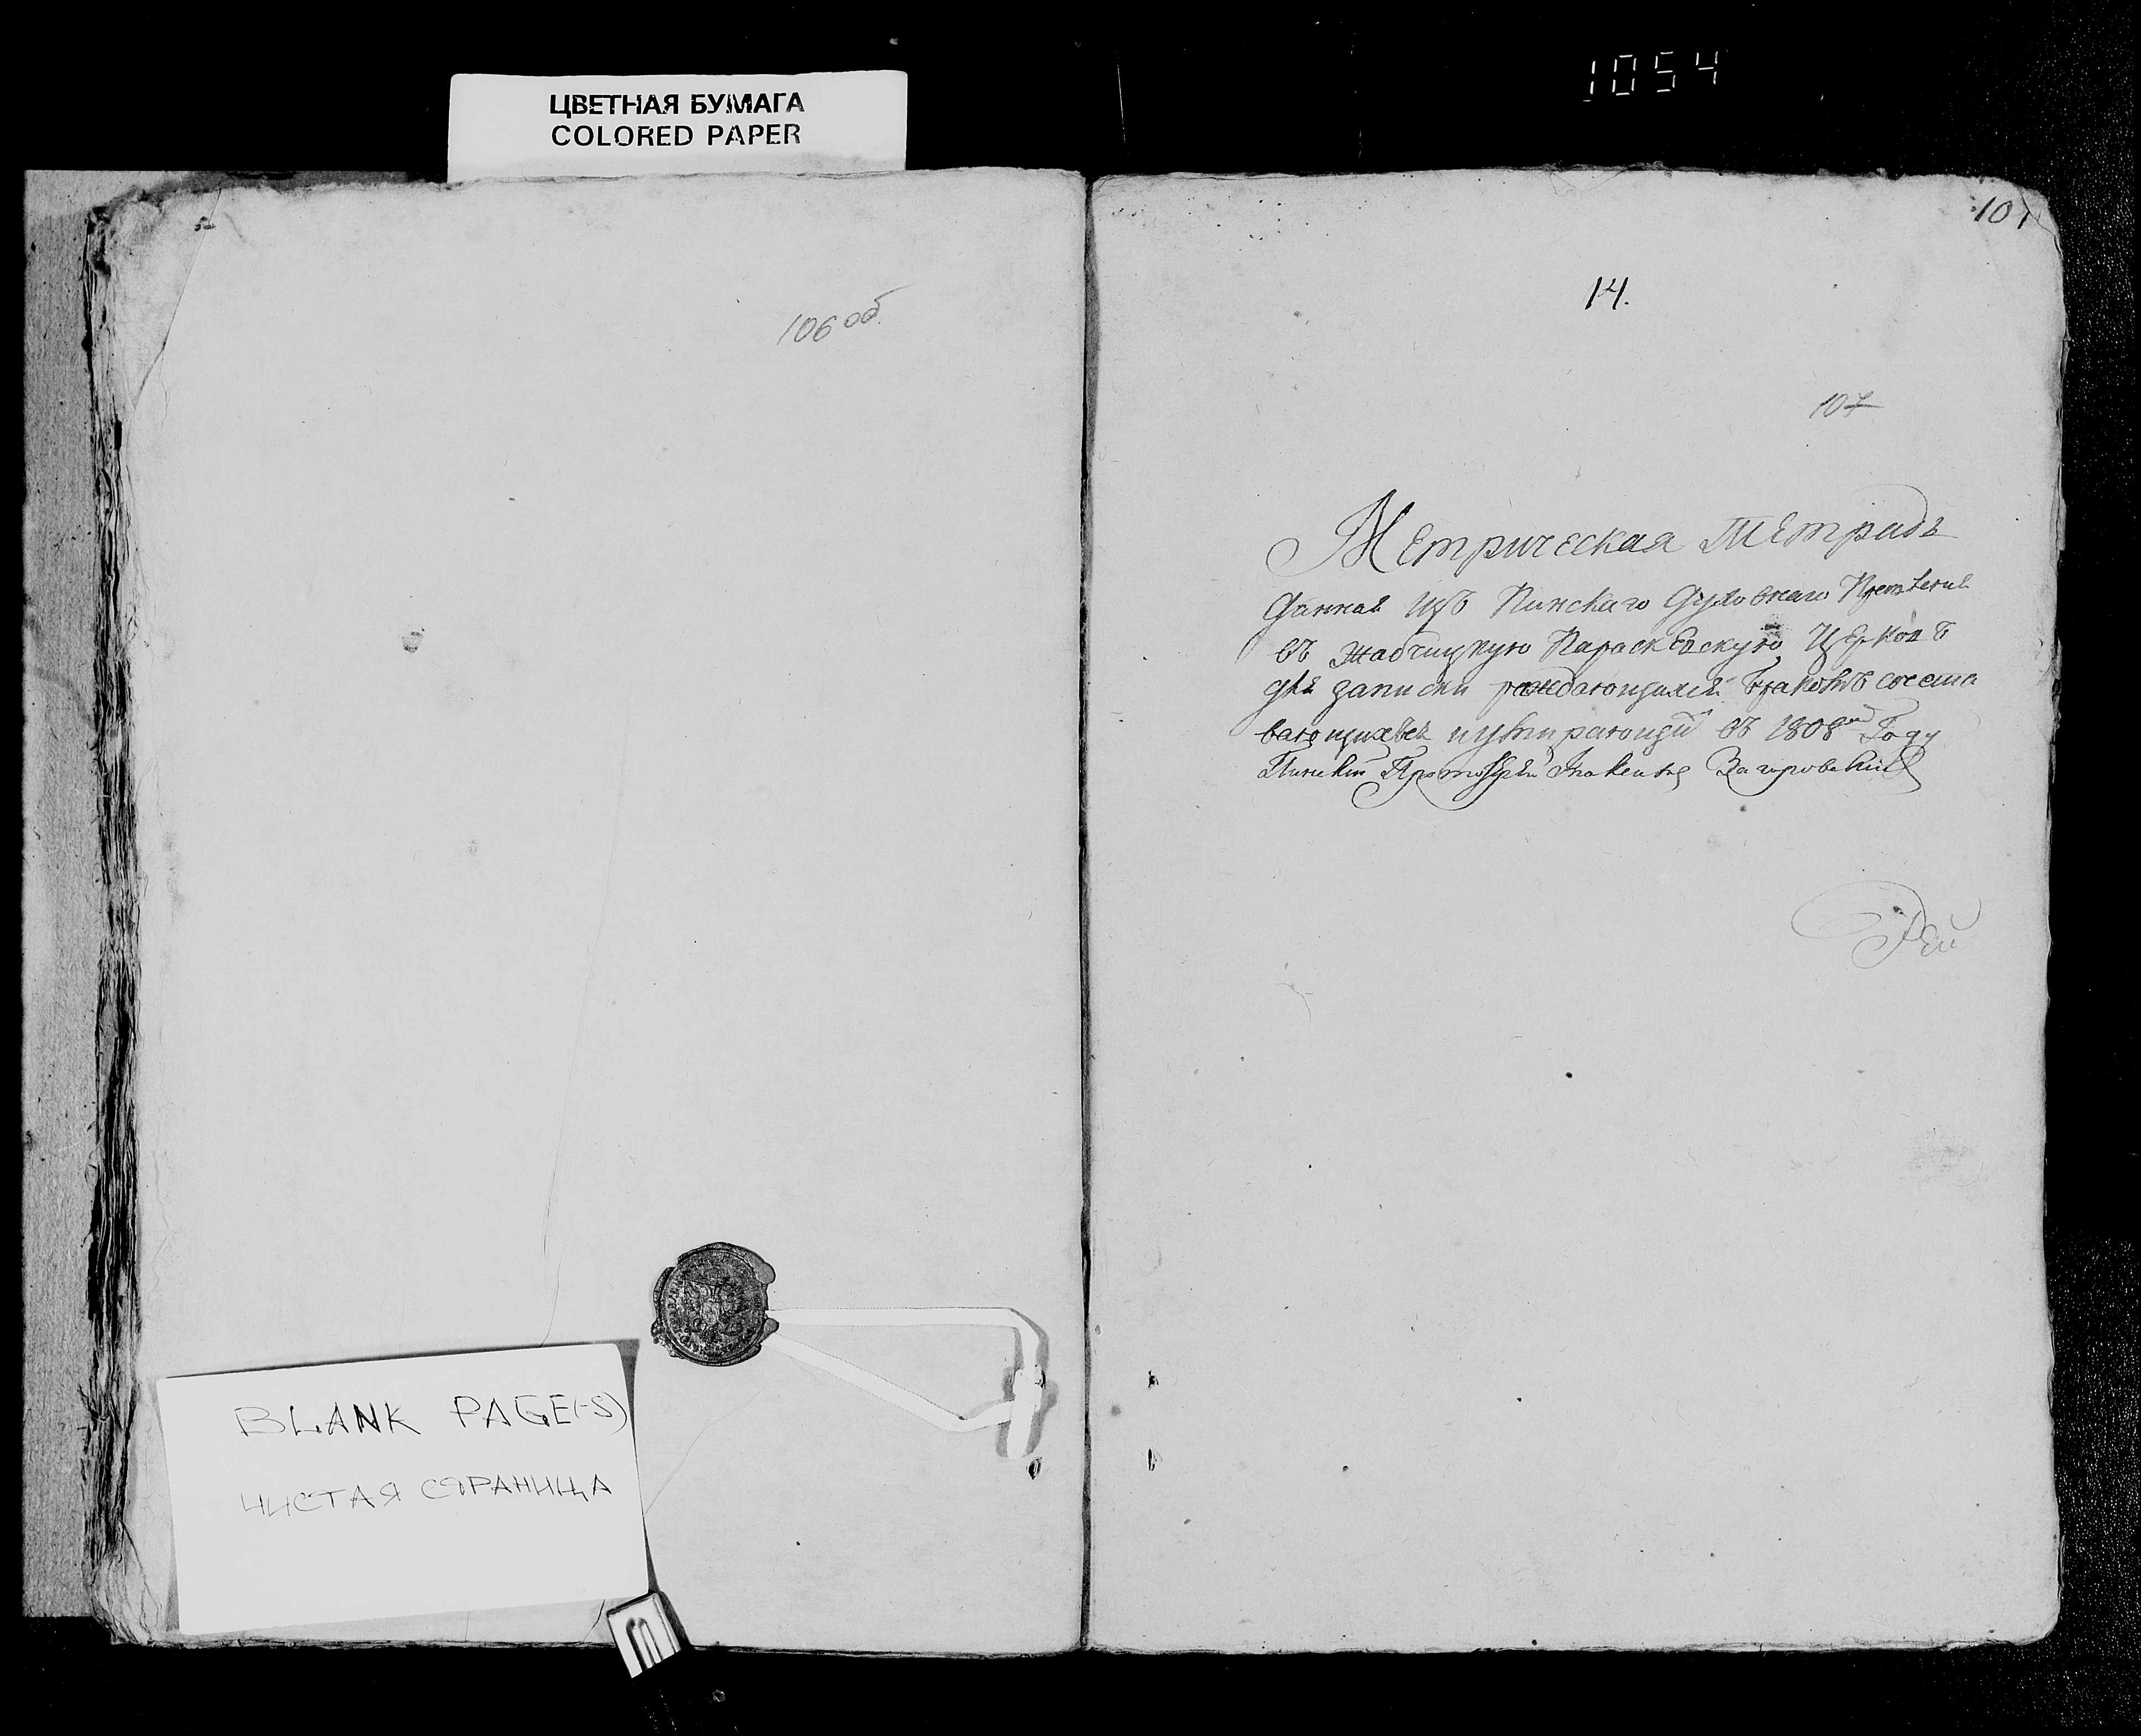 ЦВЕТНАЯ БУМАГА
COLORED PAPER
1054
106 об
BLANK PAGE(-S)
ЧИСТАЯ СТРАНИЦА
107
14.
107
Метрическая Тетрадь
Данная изъ Пинскаго Духовнаго Правленія
въ Жабчицкую Параскевскую Церковъ
для записки раждающихся браковъ сочета
вающихъся и умирающи въ 1808 Году
Пинскій Протоіерей Загоровскій